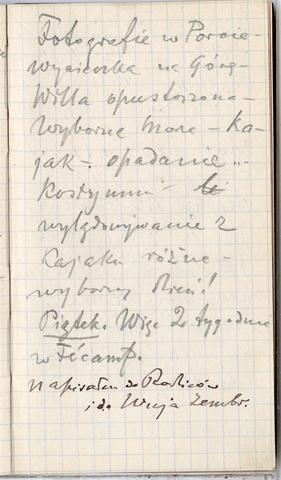 Fotografie w Porcie –
Wycieczka na Górę –
Willa opustoszona –
Wyborne morze – Ka-
jak – opadanie ...
kostyumu –
wylądowywanie z
Kajaku różne –
wyborny dzień!
Piątek. Więc 2 tygodnie
w Fécamp.
napisałem do Rodziców
i do Wuja Zembr.